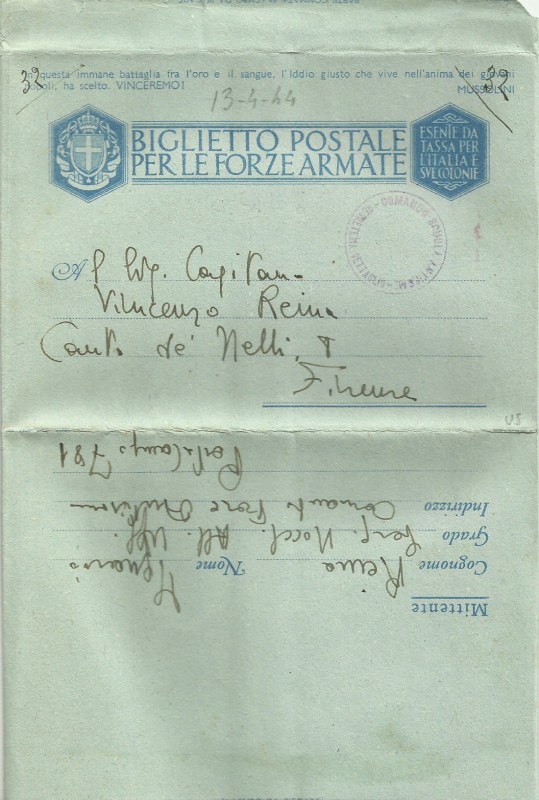 32
39
In questa immane battaglia fra l'oro e il sangue, l'Iddio giusto che vive nell'anima dei giovani
popoli, ha scelto. VINCEREMO!
MUSSOLINI
13-4-44
BIGLIETTO POSTALE
PER LE FORZE ARMATE
ESENTE DA
TASSA PER
L'ITALIA E
SVE COLONIE
COMANDO SCUOLA
Al Sig. Capitano
Vincenzo Reina
Canto de' Nelli, 8
Firenze
US
Mittente
Cognome Reina Nome
Grado Serg. All. Uff.
Indirizzo Comando
781